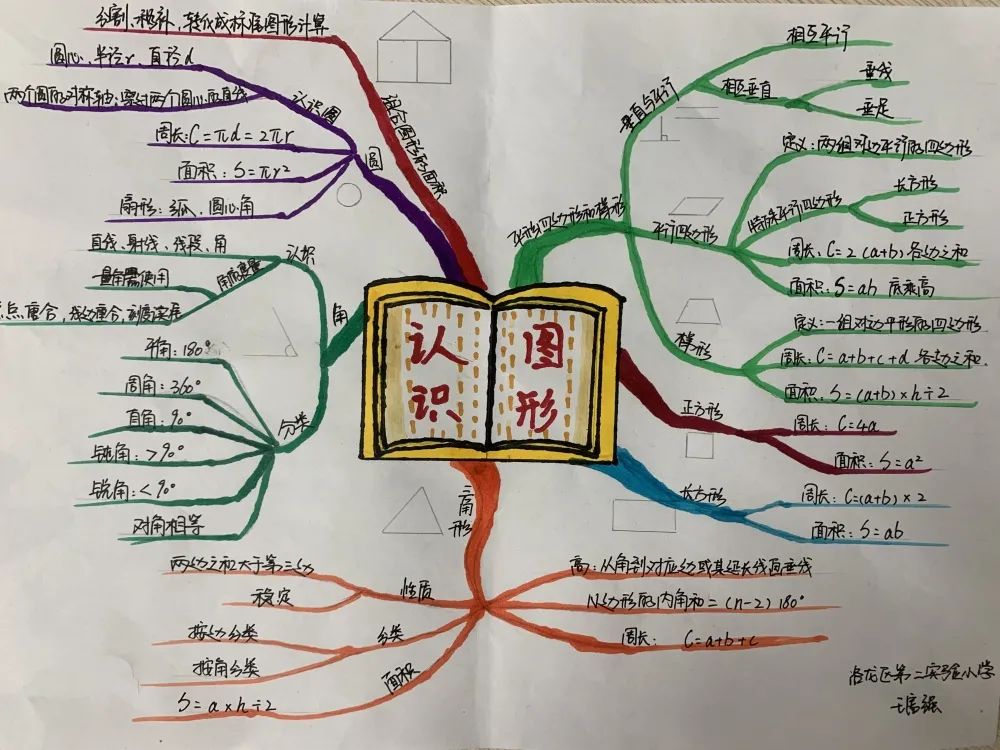 认识
图形
组合图形的面积
分割、移补、转化成标准图形计算
圆
认识圆
圆心、半径r、直径d
两个圆的对称轴:穿过两个圆心的直线
周长:C=πd=2πr
面积:S=πr²
扇形:弧、圆心角
角
认识
直线、射线、线段、角
角的度量
量角器使用
点重合,线边重合,刻度读准
分类
平角:180°
周角:360°
直角:90°
钝角:>90°
锐角:<90°
对角相等
三角形
性质
两边之和大于第三边
稳定
分类
按边分类
按角分类
面积
S=a×h÷2
高:从角到对应边或其延长线画垂线
N边形的内角和=(n-2)180°
周长: C=a+b+c
平行四边形和梯形
垂直与平行
相互平行
相互垂直
垂线
垂足
平行四边形
定义:两组对边平行的四边形
特殊平行四边形
长方形
正方形
周长:C=2(a+b)各边之和
面积:S=ah 底乘高
梯形
定义:一组对边平形的四边形
周长:C=a+b+c+d 各边之和
面积:S=(a+b)×h÷2
正方形
周长:C=4a
面积:S=a²
长方形
周长:C=(a+b)×2
面积:S=ab
洛龙区第二实验小学